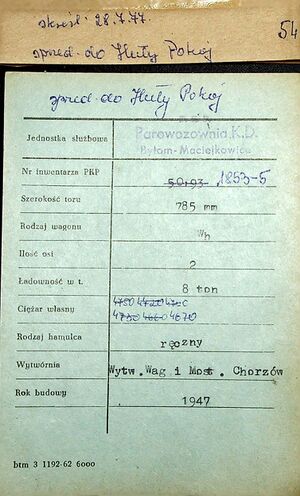 skreśl. 28.7.77.
54
sprzed. do Huty Pokój
sprzed. do Huty Pokój
Jednostka służbowa
Parowozownia K.D.
Bytom-Maciejkowice
Nr inwentarza PKP 50193 1853-5
Szerokość toru 785 mm
Rodzaj wagonu Wh
Ilość osi 2
Ładowność w t. 8 ton
Ciężar własny
4670
Rodzaj hamulca ręczny
Wytwórnia Wytw. Wag i Most. Chorzów
Rok budowy 1947
btm 3 1192-62 6000